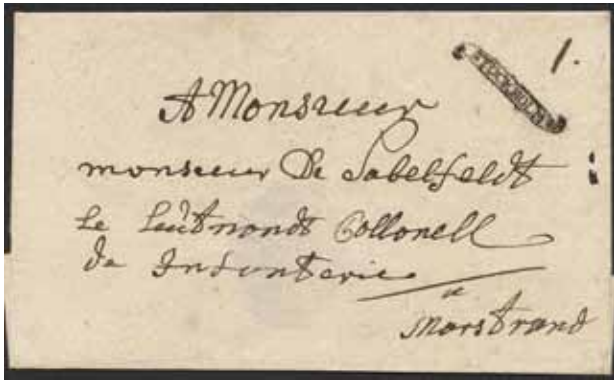 1.
STOCKHOLM
A Monsieur
monsieur De Sabelfeldt
Le Leutnandt Collonell
de Infanterie
a
Marstrand